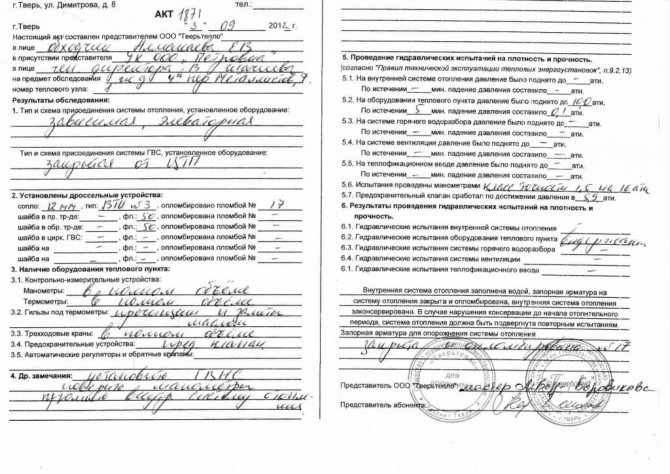 г.Тверь, ул. Димитрова, д. 8 тел.:
АКТ 1871
г.Тверь "3" 09 2012г.
Настоящий акт составлен представителем ООО "Тверьтепло"
в лице обходчик ЕВ
в присутствии представителя УК ООО "Петровна"
в лице ген. директора
на предмет обследования узла 4ый пер. Металлистов, 7.
номер теплового узла:
Результаты обследования:
1. Тип и схема присоединения системы отопления, установленное оборудование:
зависимая, элеваторная
Тип и схема присоединения системы ГВС, установленное оборудование:
закрытая от ЦТП
2. Установлены дроссельные устройства:
сопло: 12 мм. тип: ВТИ №3, опломбировано пломбой № 17
шайба в пр. тр-де: – , фл.: 50, опломбировано пломбой № –
шайба в обр. тр-де: – , фл.: 50, опломбировано пломбой № –
шайба в цирк. ГВС: – , фл.: – , опломбировано пломбой № –
шайба на – , фл.: – , опломбировано пломбой № –
шайба на – , фл.: – , опломбировано пломбой № –
3. Наличие оборудования теплового пункта:
3.1. Контрольно-измерительные устройства:
Манометры: в полном объёме
Термометры: в полном объёме
3.2. Гильзы под термометры: прочищены и залиты
маслом
3.3. Трехходовые краны: в полном объёме
3.4. Предохранительные устройства: пред клапан
3.5. Автоматические регуляторы и обратные клапаны:
4. Др. замечания: установить
поверить манометры
промыть внутр систему отопле-
ния
5. Проведение гидравлических испытаний на плотность и прочность.
(согласно "Правил технической эксплуатации тепловых энергоустановок", п.9.2.13)
5.1. На внутренней системе отопления давление было поднято до – ати.
По истечении – мин. падение давления составило – ати.
5.2. На оборудовании теплового пункта давление было поднято до 10,0 ати.
По истечении 5 мин. падение давления составило 0,1 ати.
5.3. На системе горячего водоразбора давление было поднято до – ати.
По истечении – мин. падение давления составило – ати.
5.4. На системе вентиляции давление было поднято до – ати.
По истечении – мин. падение давления составило – ати.
5.5. На теплофикационном вводе давление было поднято до – ати.
По истечении – мин. падение давления составило – ати.
5.6. Испытания проведены манометрами класс точности 1,5 на 16 ати
5.7. Предохранительный клапан сработал по достижении давления в 5,9 ати.
6. Результаты проведения гидравлических испытаний на плотность и
прочность.
6.1. Гидравлические испытания внутренней системы отопления –
6.2. Гидравлические испытания оборудования теплового пункта выдержали
6.3. Гидравлические испытания системы горячего водоразбора –
6.4. Гидравлические испытания системы вентиляции –
6.1. Гидравлические испытания теплофикационного ввода –
Внутренняя система отопления заполнена водой, запорная арматура на
систему отопления закрыта и опломбирована, внутренняя система отопления
законсервирована. В случае нарушения консервации до начала отопительного
периода, система отопления должна быть подвергнута повторным испытаниям.
Запорная арматура для опорожнения системы отопления
закрыта и опломбирована №17
Представитель ООО "Тверьтепло" мастер
Представитель абонента: